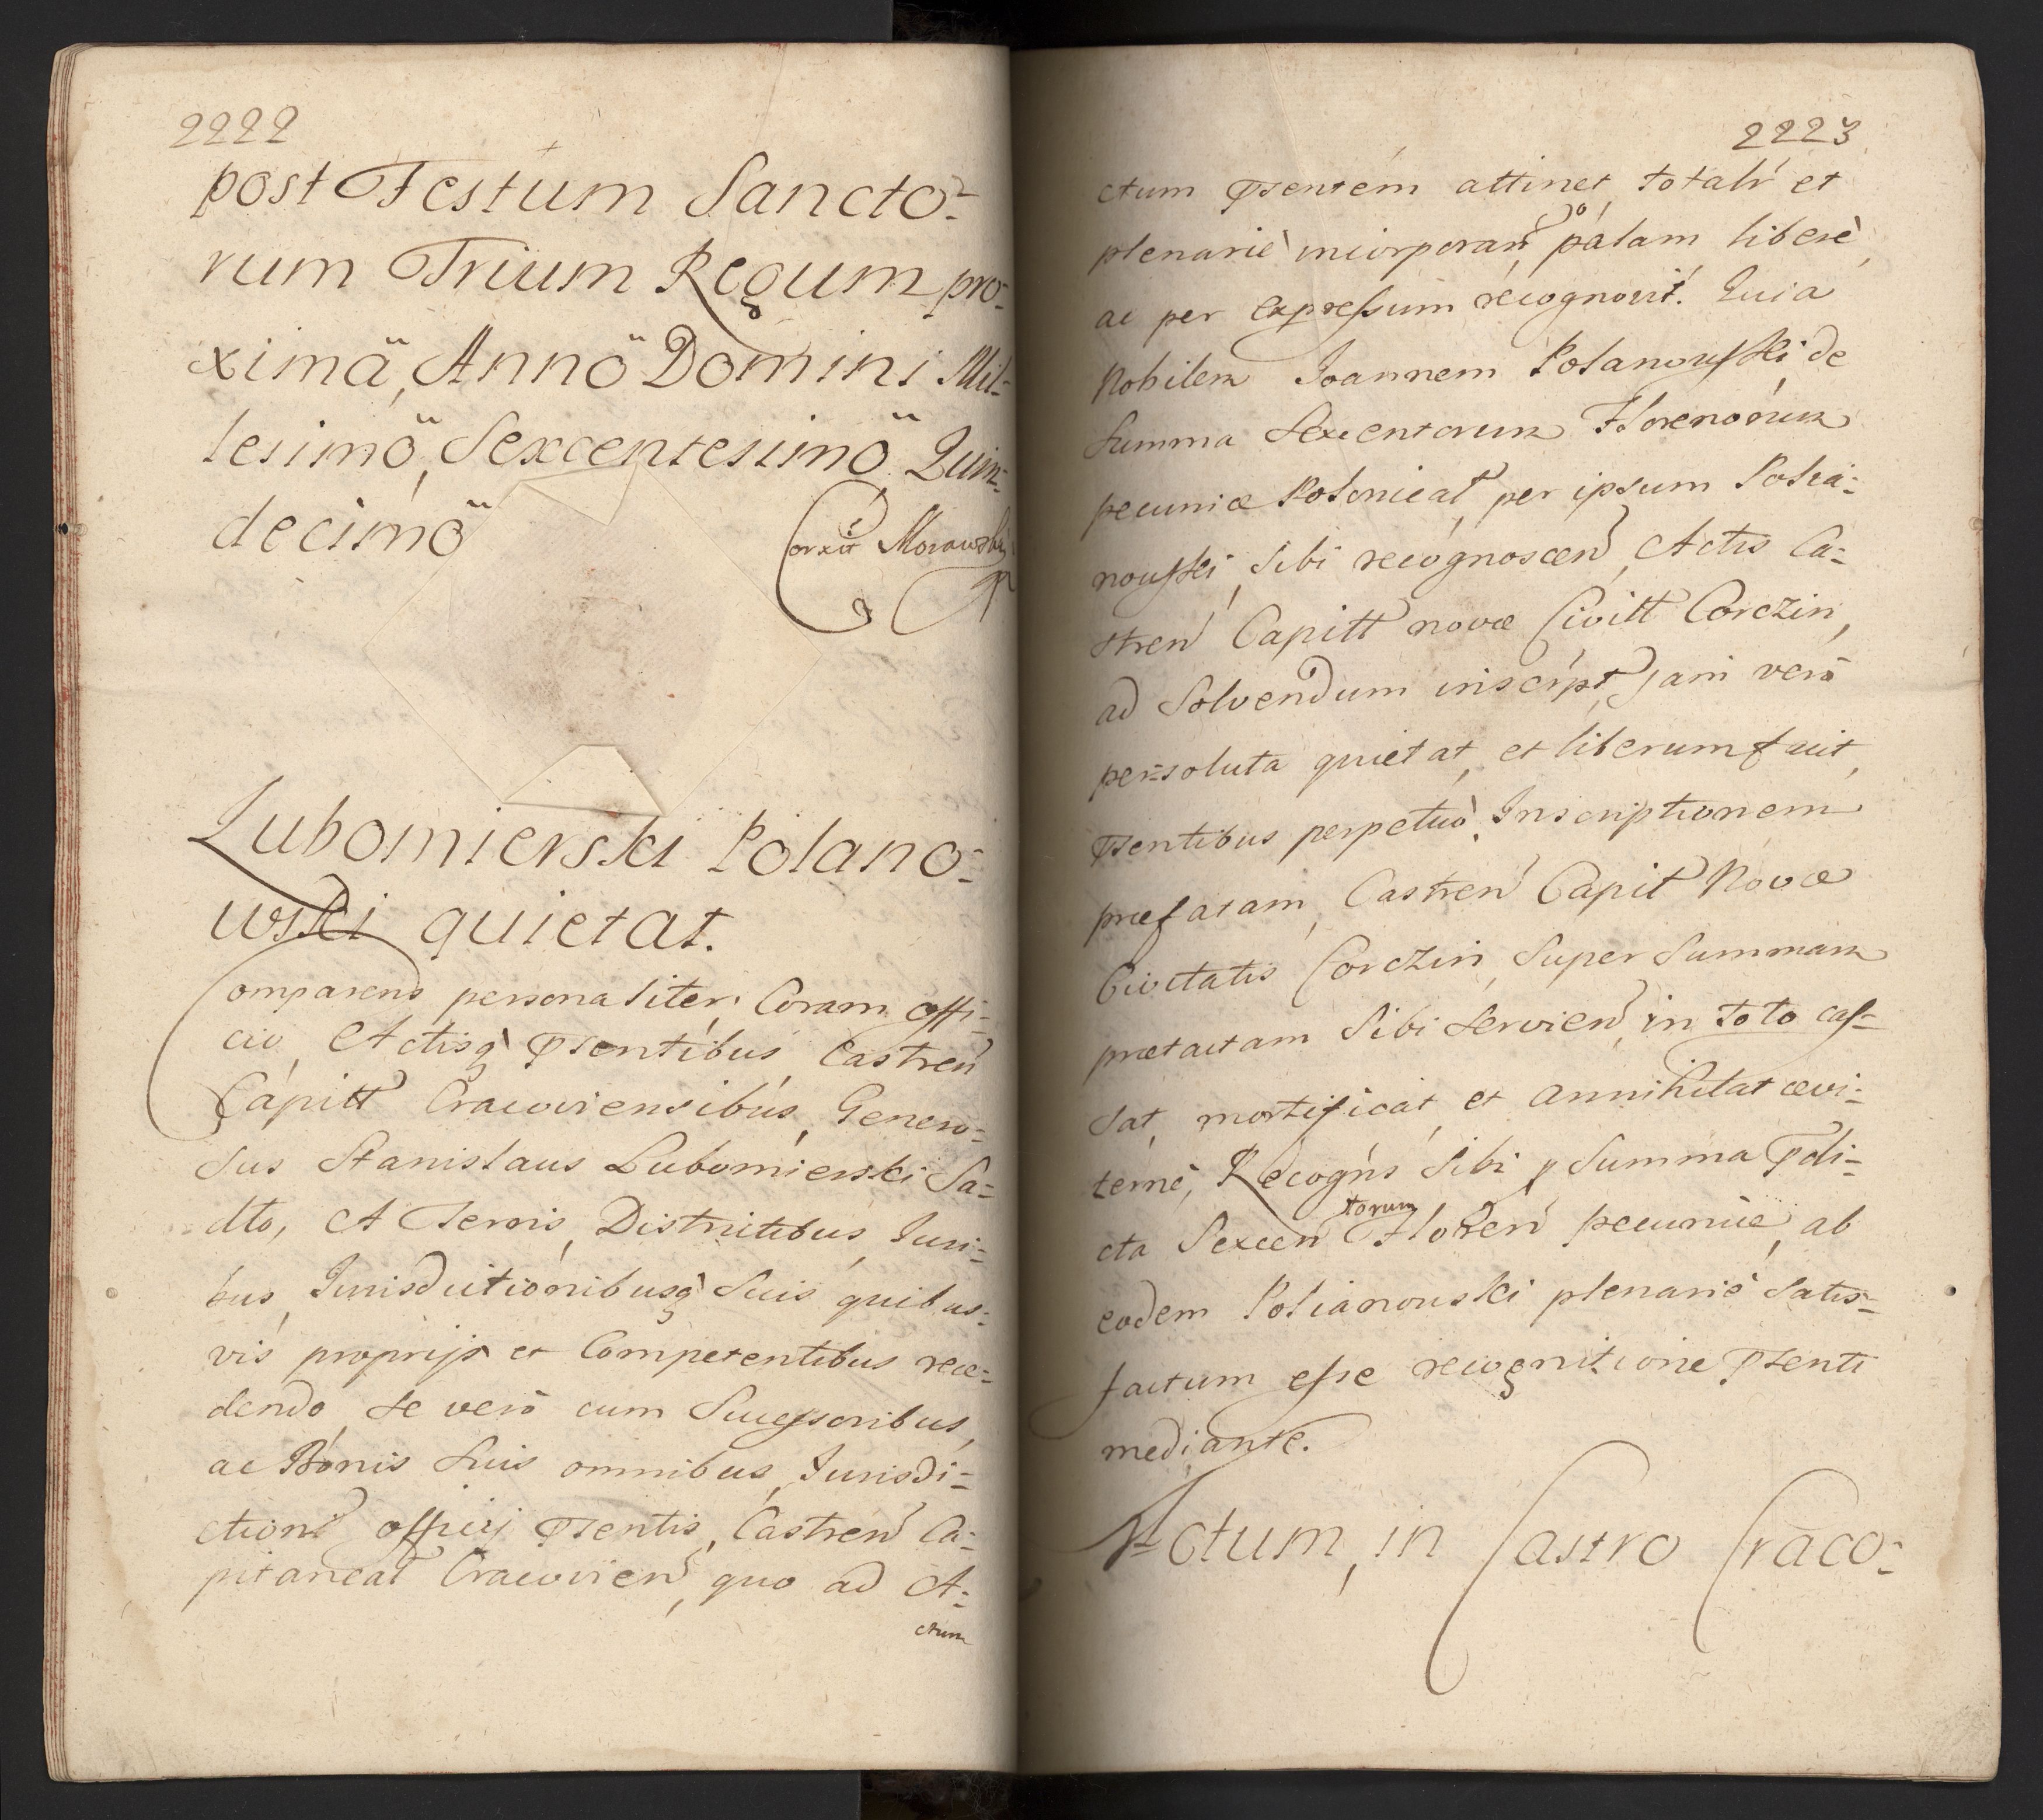 2222
post Festum Sancto=
rum Trium Regum pro=
ximä, Annö Domini Mil=
lesimö, Sexcentesimö Quin=
decimö
Corxit Morawski
Lubomierski Polano=
wski quietat.
Comparens personaliter, Coram offi=
cio, Actisq̀ Pſentibus, Castren
Capitt Cracoviensibus, Genero=
sus Stanislaus Lubomierski Sa=
dto, A Terris, Districtibus, Juri=
bus, Jurisdictionibusq̀ Suis quibus=
vis proprijs et Competentibus rece=
dendo se verò cum Successoribus,
ac Bonis suis omnibus, Jurisdi=
ctioni officij Pſentis, Castren Ca=
pitaneat Cracovien, quo ad A=
ctum
2223
ctum Pſentem attinet, totalr et
plenariè incorporan, palam, liberè,
ac per expreſsum recognovit. Quia
Nobilem Joannem Polanowſki de
Summa Sexcentorum Florenorum
pecuniæ Polonicat, per ipsum Polia=
nowſki, Sibi recognoscen, Actis Ca=
stren Capitt novæ Civitt Corczin,
ad Solvendum inscript, Jam verò
per=soluta quietat, et liberum facit,
Pſentibus perpetuò, Inscriptionem
præfatam, Castren Capit Novæ
Civitatis Corczin, Super Summam
prætactam Sibi Servien, in toto caſ=
sat, mortificat, et annihilat ævi=
ternè, Recogns Sibi p Summa Pdi=
cta Sexcen torum Floren pecuniæ, ab
eodem Polianowski plenariè Satis=
factum eſse recognitione Pſenti
mediante.
Actum, in Castro Craco=